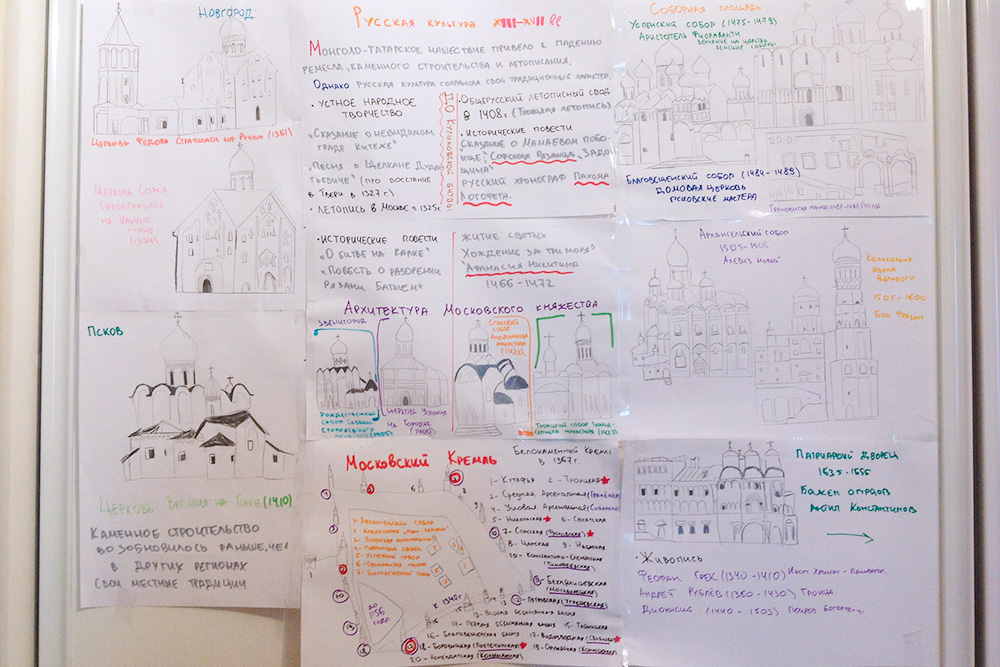 Новгород:
Церковь Федора Стратилата на Ручью (1361)
Церковь Спаса
Преображения
на Ильине
улице
(1374)
Псков
Церковь Василия на Горке (1410)
Каменное строительство
возобновилось раньше, чем
в других регионах
Свои местные традиции
Русская культура XIII-XVII вв
Монголо-татарское нашествие привело к падению
ремесла, каменного строительства и летописания.
Однако русская культура сохранила свой традиционный характер.
• Устное народное
творчество
"Сказание о невидимом
граде Китеже"
"Песня о Щелкане Дуден-
тьевиче" (про восстание
в Твери в 1327 г.)
• Летопись в Москве с 1325г.
До Куликовской битвы
• Общерусский летописный свод
в 1408г. (Троицкая летопись)
• Исторические повести
Сказание о Мамаевом побо-
ище", Софония Рязанца "Задон
щина"
Русский хронограф Пахома
Логофета.
• Исторические повести
"О битве на Калке"
"Повесть о разорении
Рязани Батыем"
Житие святых
Хождение за три моря"
Афанасия Никитина
1466-1472
Архитектура Московского княжества
Звенигород
Рождественский
собор Саввино-
Сторожевского
(1405)
Церковь Успения
на Городке
(1400)
Спасский
собор
Андроникова
монастыря
(1422)
Троицкий собор Троице-
Сергиева монастыря (1422)
Московский Кремль
Белокаменный Кремль
в 1367г.
1 - Кутафья 2 - Троицкая
3 - Средняя Арсенальная (Граненая)
4 - Угловая Арсенальная (Собакина)
5 - Никольская 6 - Сенатская
7 - Спасская (Фроловская)
8 - Царская 9 - Набатная
10 - Константино-Еленинская
(Тимофеевская)
11 - Беклемишевская
(Москворецкая)
12 - Петровская (Угрешская)
13 - Вторая безымянная башня
14 - Первая безымянная башня 15 - Тайницкая
16 - Благовещенская башня 17 - Водовзводная (Свиблова)
18 - Боровицкая (Предтеченская) 19 - Оружейная (Конюшенная)
20 - Комендатская (Колымажная)
1 - Архангельский собор
2 - Колокольня "Иван Великий"
3 - Успенская колокольня
4 - Патриарший дворец
5 - Успенский собор
6 - Грановитая палата
7 - Благовещенский собор
до
1156
года
к 1340г
Соборная площадь
Успенский собор (1475-1479)
Аристотель Фиораванти
венчание на царство
земские соборы
Благовещенский собор (1484-1489)
домовая церковь
псковские мастера
Архангельский собор
1505-1508
Алевиз Новый
Колокольня
Ивана
Великого
1505-1600
Бон Фрязин
Патриарший дворец
1635-1656
Бажен Огурцов
Антип Константинов
• Живопись
Феофан Грек (1340-1410)
Андрей Рублёв (1360-1430) Троица
Дионисий (1440-1503)